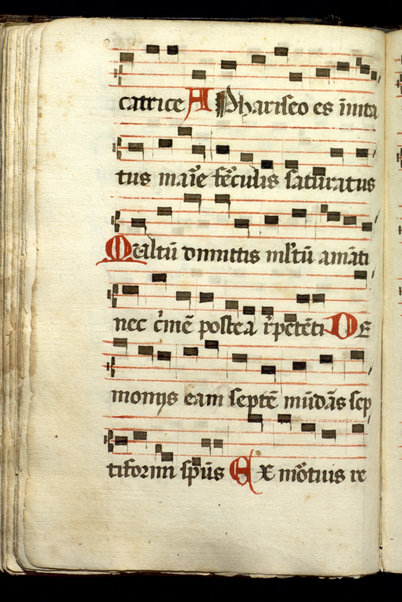 catrice A Phariseo es īuita
tus marīe fērculis saturatus
Multū dimittis multū amāti
nec crīmē postea rēpetēti De
monijs eam septē mūdās sep
tiformi spūs Ex mōrtuis re